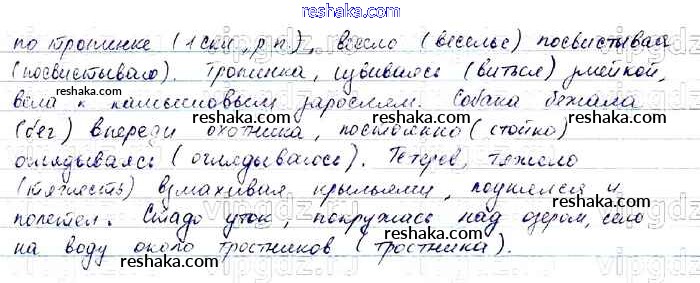 reshaka.com
по тропинке (1 скл., р.п.), весело (веселье) посвистывая
(посвистываю). Тропинка, извиваясь (виться) змейкой,
вела к камышовым зарослям. Собака бежала
(бег) впереди охотника, постоянно (стойко)
оглядываясь (оглядываюсь). Тетерев, тяжело
(тяжесть) взмахивая крыльями, поднялся и
полетел. Стадо уток, покружась над озером, село
на воду около тростников (тростника).
reshaka.com